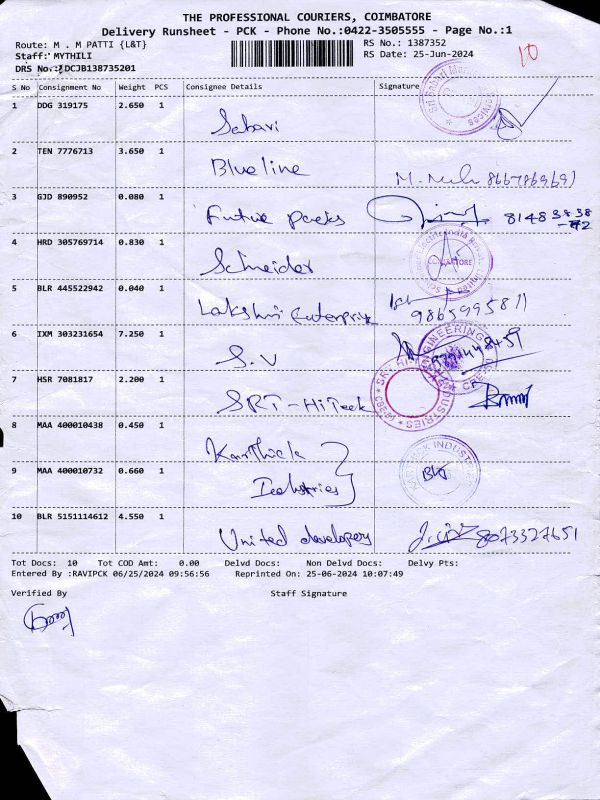 THE PROFESSIONAL COURIERS, COIMBATORE
Delivery Runsheet - PCK - Phone No.:0422-3505555 - Page No.:1
Route: M . M PATTI {L&T} RS No.: 1387352
Staff: MYTHILI RS Date: 25-Jun-2024
DRS No.: DCJB138735201
10
S No Consignment No Weight PCS Consignee Details Signature
1 DDG 319175 2.650 1 Sabari
2 TEN 7776713 3.650 1 Blueline 8667869691
3 GJD 890952 0.080 1 Future Packs 81483838
4 HRD 305769714 0.830 1 Schneider
5 BLR 445522942 0.040 1 Lakshmi Enterprise 9865995811
6 IXM 303231654 7.250 1 S.V
7 HSR 7081817 2.200 1 SRT-HiTeck
8 MAA 400010438 0.450 1 Karthick
9 MAA 400010732 0.660 1 Industries
10 BLR 5151114612 4.550 1 United developers 8073327651
Tot Docs: 10 Tot COD Amt: 0.00 Delvd Docs: Non Delvd Docs: Delvy Pts:
Entered By :RAVIPCK 06/25/2024 09:56:56 Reprinted On: 25-06-2024 10:07:49
Verified By Staff Signature